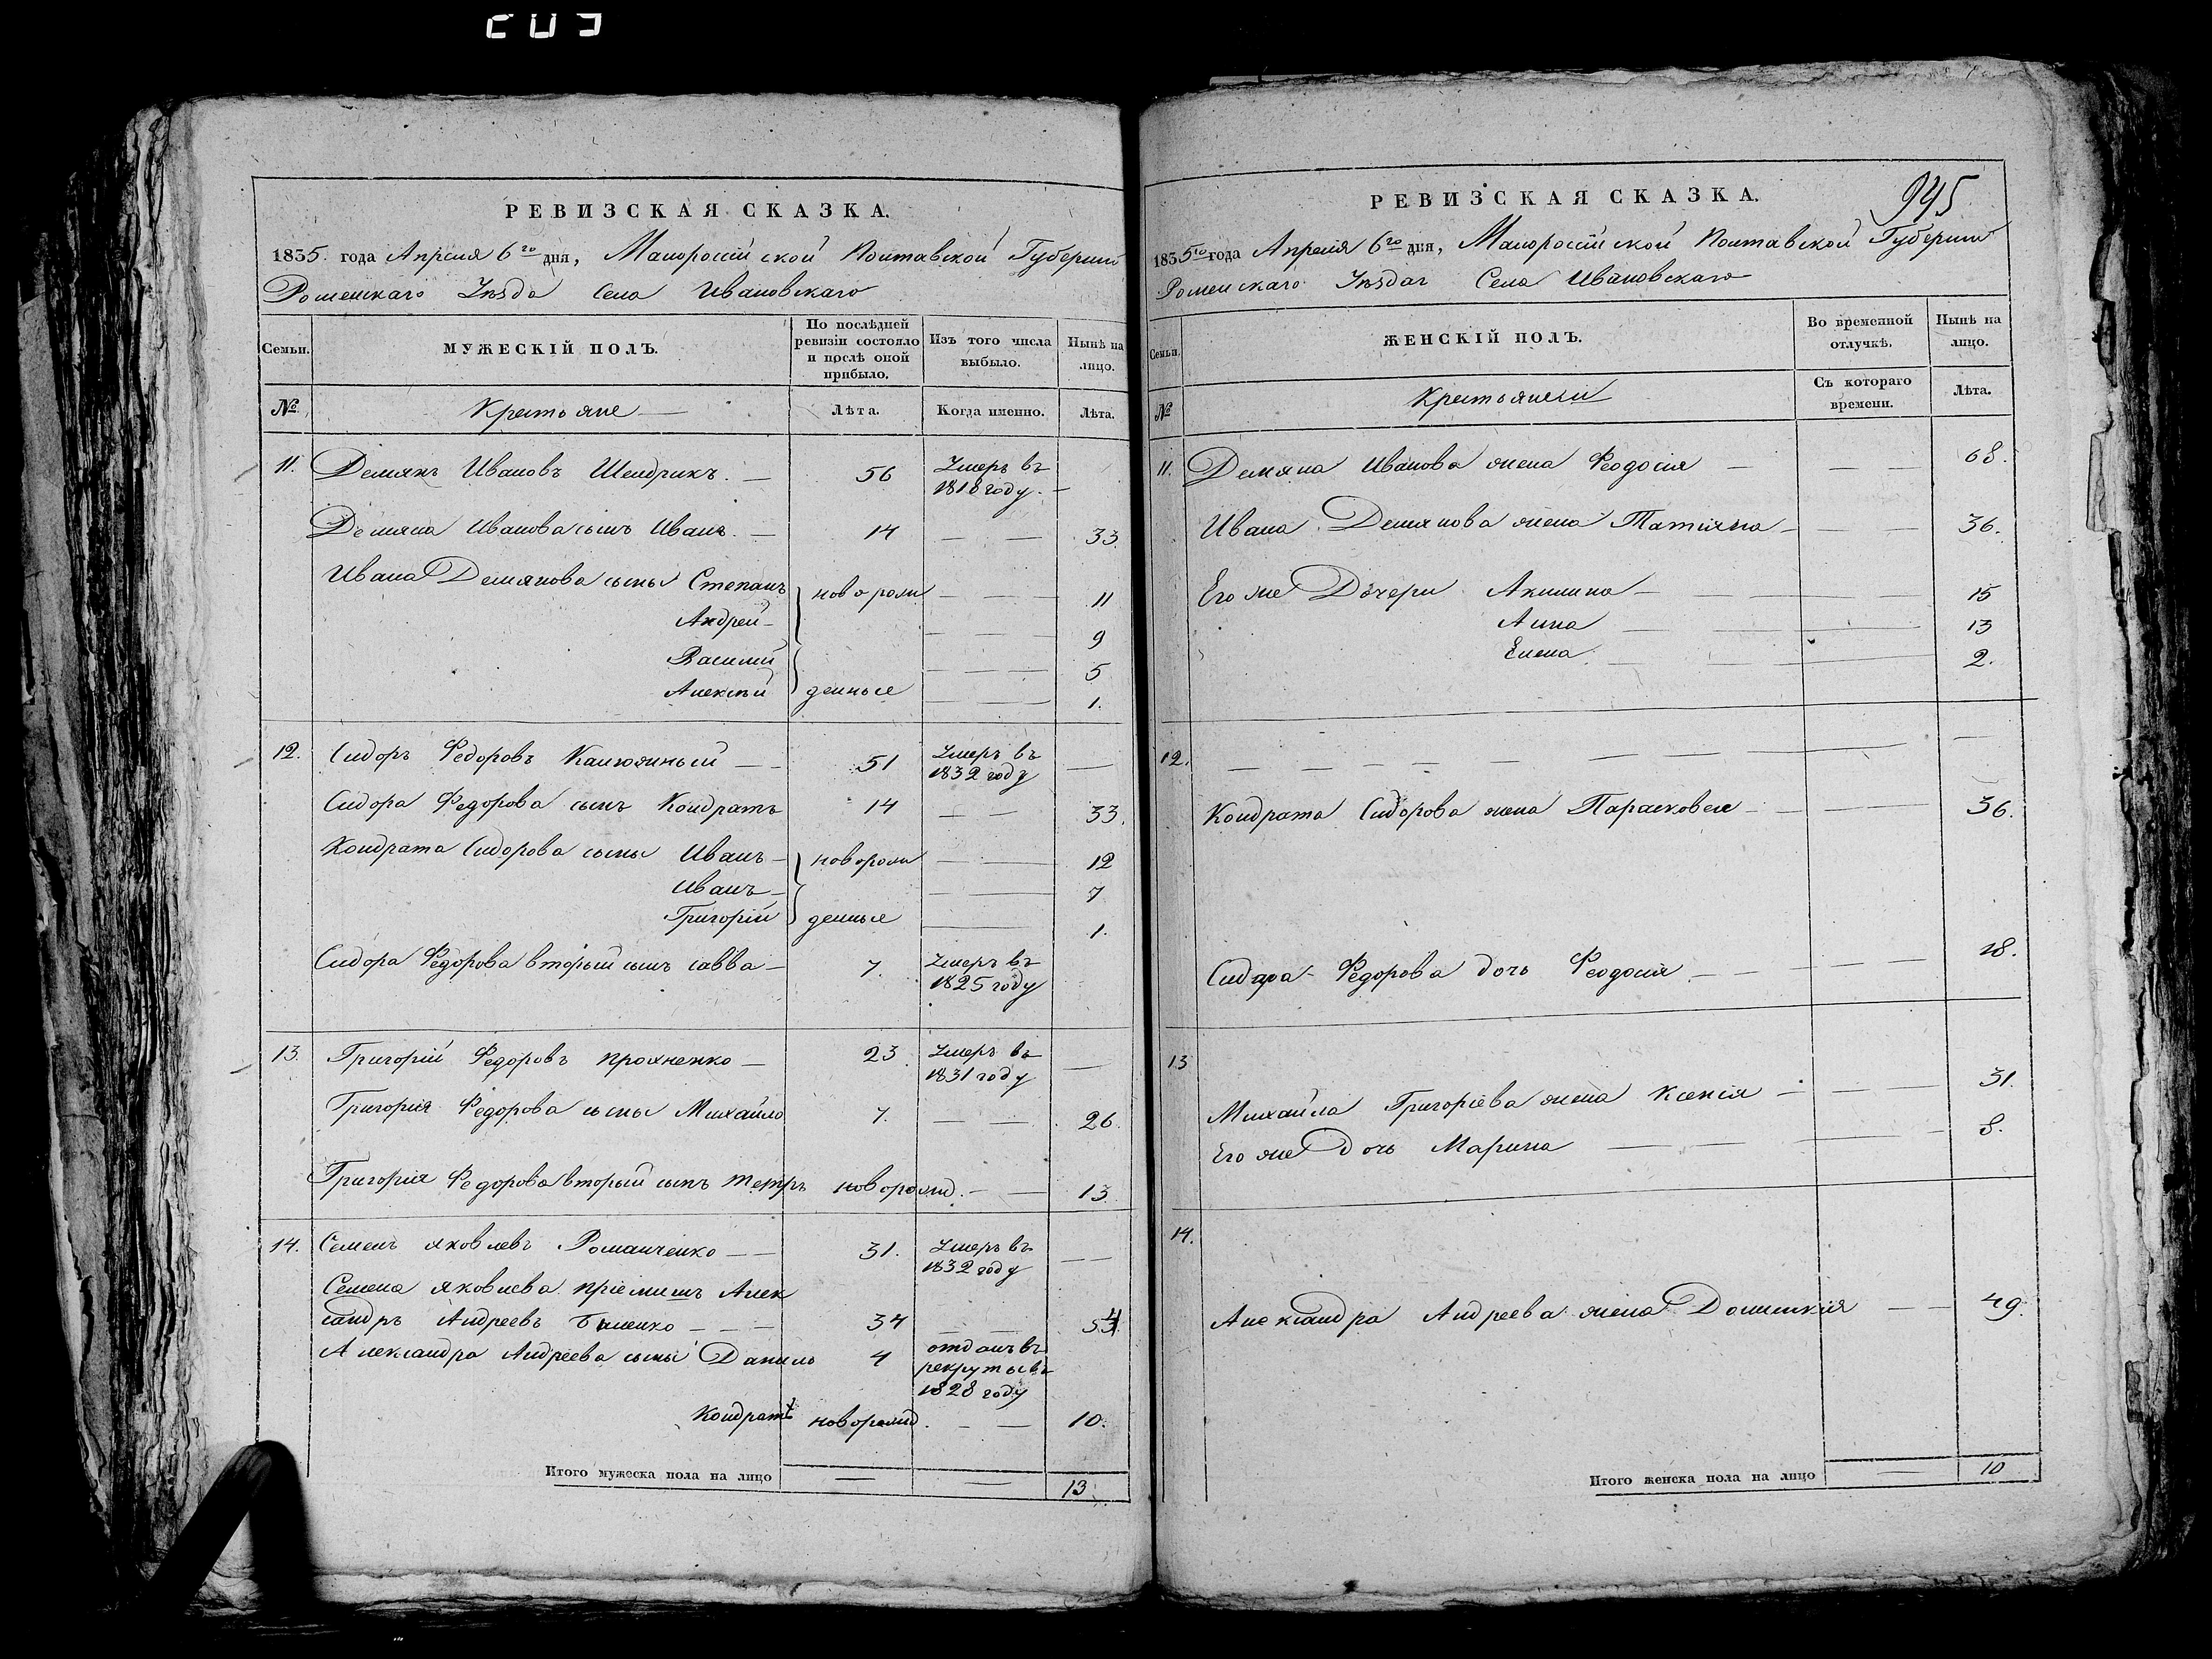 РЕВИЗСКАЯ СКАЗКА.
1835. года Апреля 6го дня, Малороссійской Полтавской Губерніи
Роменскаго Уѣзда Села Ивановскаго
Семьи.
МУЖЕСКІЙ ПОЛЪ.
По послѣдней ревизіи состояло и послѣ оной прибыло.
Изъ того числа выбыло.
Нынѣ на лицо.
№ Крестьяне — Лѣта. Когда именно. Лѣта.
11. Демянъ Ивановъ Шендрикъ. — 56 Умеръ въ 1818 году. —
Демяна Иванова сынъ Иванъ. — 14 — — 33.
Ивана Демянова сыны Степанъ новорож — — — 11
Андрей — — — — 9
Василий — — — 5
Алексѣй денные — — 1.
12. Сидоръ Федоровъ — — 51 Умеръ въ 1832 году —
Сидора Федорова сынъ Кондратъ 14 — — 33.
Кондрата Сидорова сыны Иванъ — новорож — — 12
Иванъ — — 7
Григорій денные — 1.
Сидора Федорова вторый сынъ Савва — 7. Умеръ въ 1825 году
13. Григорій Федоровъ — 23. Умеръ въ 1831 году —
Григорія Федорова сыны Михайло 7. — — 26.
Григорія Федорова вторый сынъ Петръ новорожд. — — 13.
14. Семенъ Яковлевъ Романченко — — 31. Умеръ въ 1832 году — —
Семена Яковлева пріемишъ Алек
сандръ Андреевъ — — — 34 — — 54
Александра Андреева сыны Данило 4 отданъ въ рекруты въ 1828 году
Кондратъ новорожд. — — 10.
Итого мужеска пола на лицо — — 13
945
РЕВИЗСКАЯ СКАЗКА.
1835го года Апреля 6го дня, Малороссійской Полтавской Губерніи
Роменскаго Уѣзда Села Ивановскаго
Семьи.
ЖЕНСКІЙ ПОЛЪ.
Во временной отлучкѣ.
Нынѣ на лицо.
№ Крестьянки Съ котораго времени. Лѣта.
11. Демяна Иванова жена Феодосія — — — 68.
Ивана Демянова жена Татіяна — — — 36.
Его же Дочери Акилина — — — — 15
Анна — — — 13
Елена. — — — 2.
12. — — — — — — — — — —
Кондрата Сидорова жена Парасковея — — — — 36.
Сидора Федорова дочь Феодосія — — — — — 18.
13
Михайла Григоріева жена Ксенія — — — — 31.
Его же дочь Марина — — — 8.
14.
Александра Андреева жена Домникія — — 49.
Итого женска пола на лицо — 10